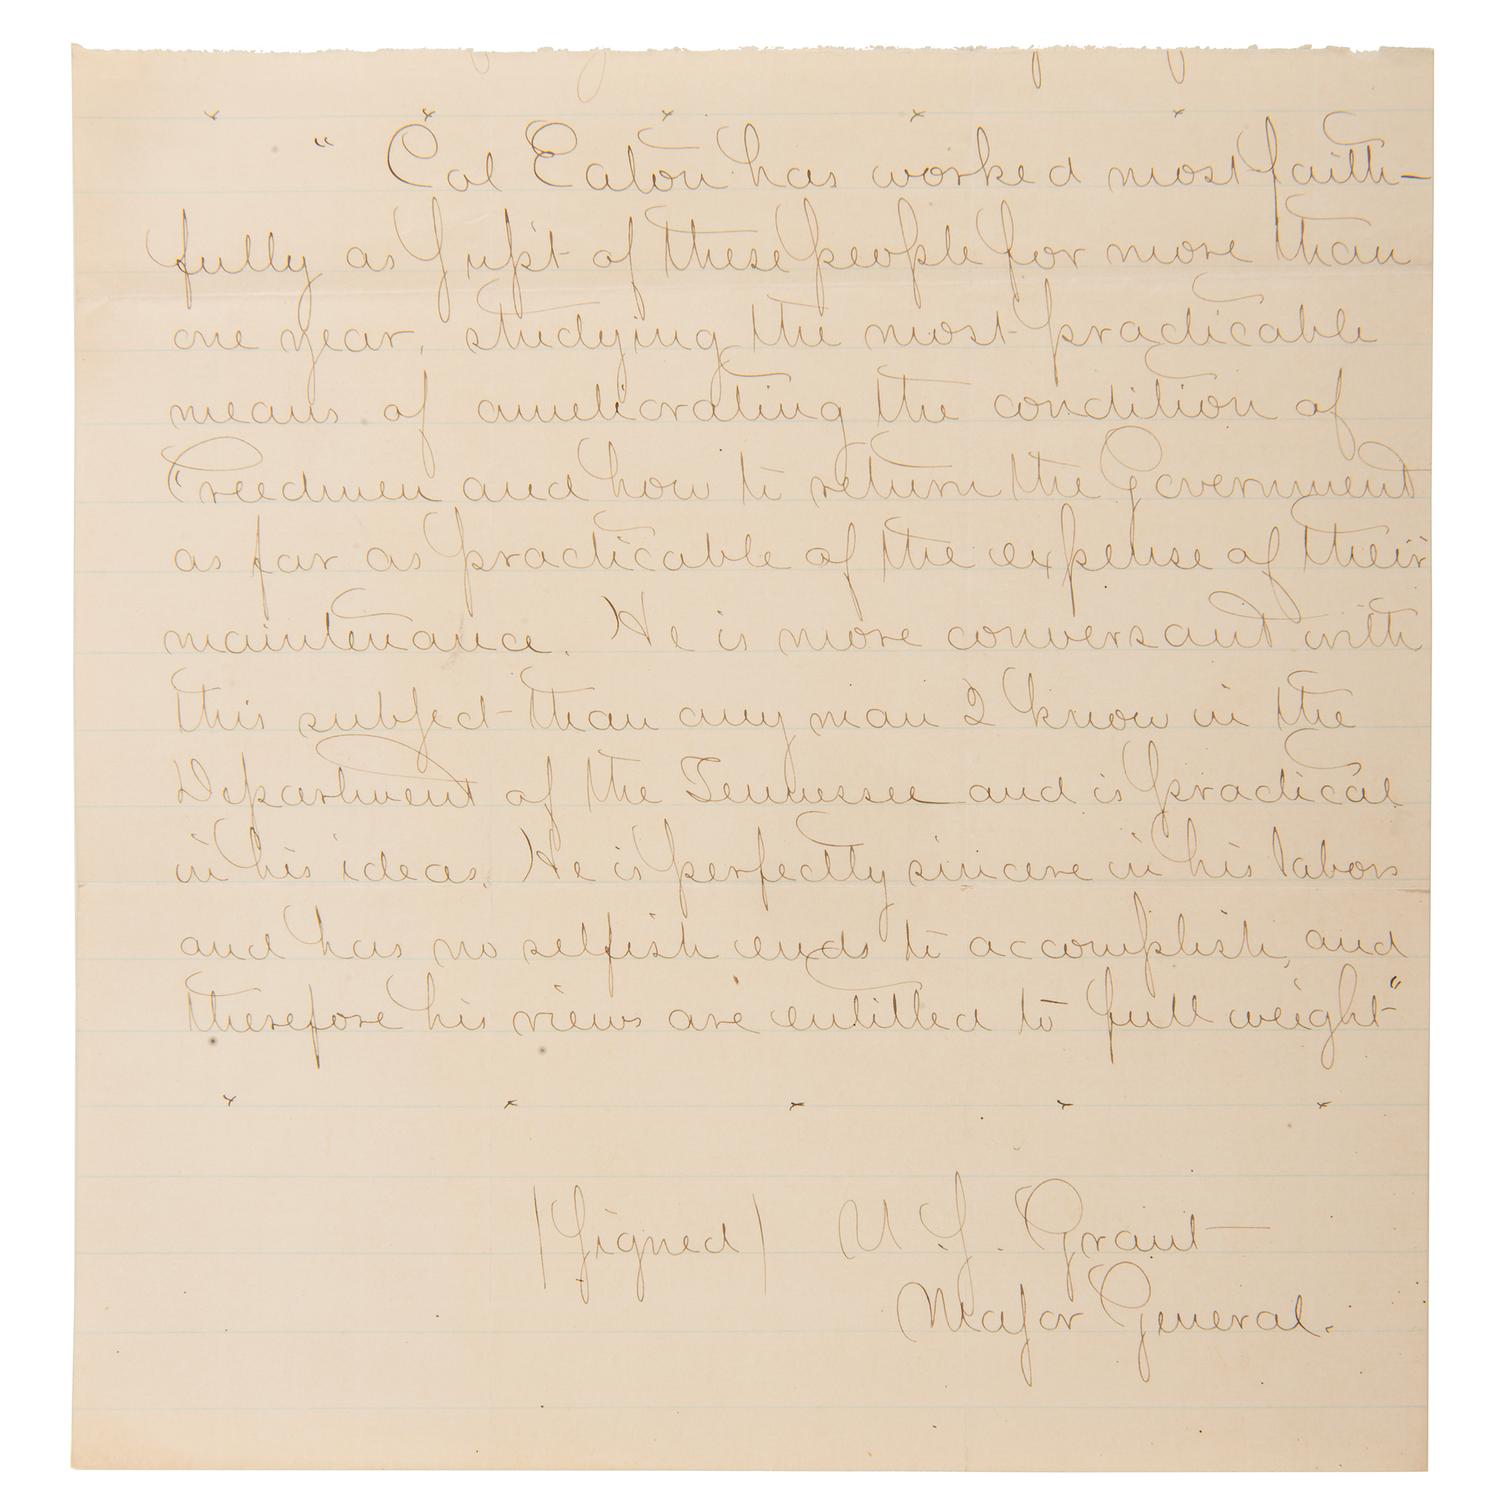 × × × × ×
" Col Eaton has worked most faith-
fully as Supt of these people for more than
one year, studying the most practicable
means of ameliorating the condition of
Freedmen and how to return the Government
as far as practicable of the expense of their
maintenance. He is more conversant with
this subject than any man I know in the
Department of the Tennessee and is practical
in his ideas. He is perfectly sincere in his labors
and has no selfish ends to accomplish, and
therefore his views are entitled to full weight"
× × × × ×
(Signed) U. S. Grant
Major General.